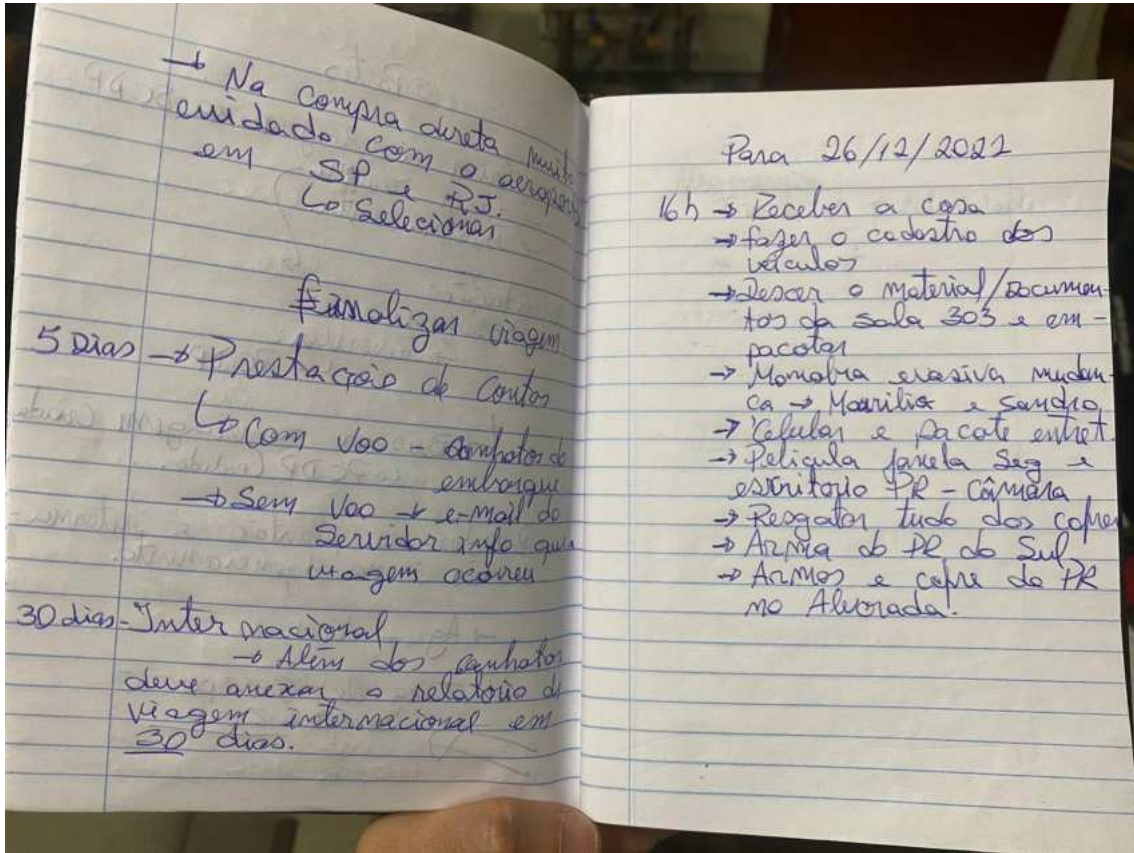 → Na compra direta muito
cuidado com o aeroporto
em SP e RJ.
↳ Selecionar
Finalizar viagem
5 Dias → Prestação de Contas
↳ Com Voo - canhotos de
embarque
→ Sem Voo → e-mail do
Servidor info que a
viagem ocorreu
30 dias - Internacional
→ Além dos canhotos
deve anexar o relatório de
viagem internacional em
30 dias.
Para 26/12/2022
16h → Receber a casa
→ fazer o cadastro dos
veículos
→ Descer o material/Documen-
tos da sala 303 e em-
pacotar
→ Manobra evasiva mudan-
ça → Marilia e Sandro
→ Celular e pacote entret.
→ Película janela Seg e
escritório PR - Câmara
→ Resgatar tudo dos cofres
→ Arma do PR do Sul
→ Armas e cofre do PR
no Alvorada!